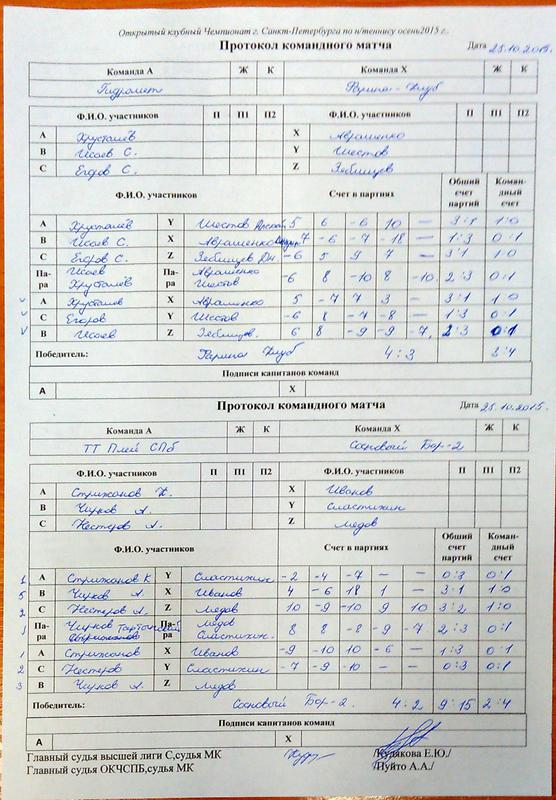 Открытый клубный Чемпионат г. Санкт-Петербурга по н/теннису осень2015 г.
Протокол командного матча Дата 25.10.2015.
Команда А Ж К Команда Х Ж К
Гидромет Фарина-Клуб
Ф.И.О. участников П П1 П2 Ф.И.О. участников П П1 П2
А Хрусталёв X Авраменко
В Исаев С. Y Шестов
С Егоров С. Z Зебницев
Ф.И.О. участников Счет в партиях Общий счет партий Командный счет
А Хрусталёв Y Шестов 5 6 -6 10 — 3:1 1:0
В Исаев С. X Авраменко 7 -6 -7 -18 — 1:3 0:1
С Егоров С. Z -6 5 9 7 — 3:1 1:0
Пара Исаев Хрусталёв Пара Авраменко Шестов -6 8 -10 8 -10. 2:3 0:1
А Хрусталев X Авраменко 5 -7 7 3 — 3:1 1:0
С Егоров Y Шестов -6 8 -7 -8 — 1:3 0:1
В Исаев Z 6 8 -9 -9 -7. 2:3 0:1
Победитель: Фарина Клуб 4:3 3:4
Подписи капитанов команд
А X
Протокол командного матча Дата 25.10.2015.
Команда А Ж К Команда Х Ж К
ТТ Плей СПб Сосновый Бор-2
Ф.И.О. участников П П1 П2 Ф.И.О. участников П П1 П2
А Стрижанов К. X Иванов
В Чирков А. Y Сластихин
С Нестеров А. Z Медов
Ф.И.О. участников Счет в партиях Общий счет партий Командный счет
1 А Стрижанов К Y Сластихин -2 -4 -7 — — 0:3 0:1
5 В Чирков А. X Иванов 4 -6 18 1 — 3:1 1:0
2 С Нестеров А. Z Медов 10 -9 -10 9 10 3:2 1:0
Пара Чирков Пара Медов Сластихин. 8 8 -8 -9 -7 2:3 0:1
1 А Стрижанов X Иванов -9 -10 10 -6 — 1:3 0:1
2 С Нестеров Y Сластихин -7 -9 -10 — 0:3 0:1
3 В Чирков А. Z Медов
Победитель: Сосновый Бор-2. 4:2 9:15 2:4
Подписи капитанов команд
А X
Главный судья высшей лиги С,судья МК /Кудякова Е.Ю./
Главный судья ОКЧСПБ,судья МК /Пуйто А.А./